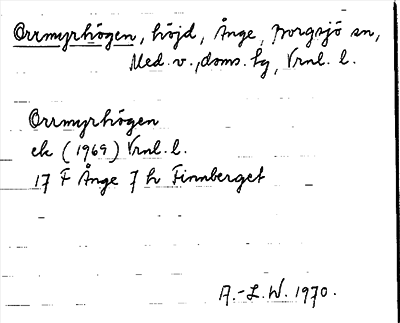 Orrmyrhögen, höjd, Ånge, Borgsjö sn,
Med. v., doms. fg, Vrnl. l.
Orrmyrhögen
ek (1969) Vrnl. l.
17 F Ånge 7 h Finnberget
A.-L.W. 1970.